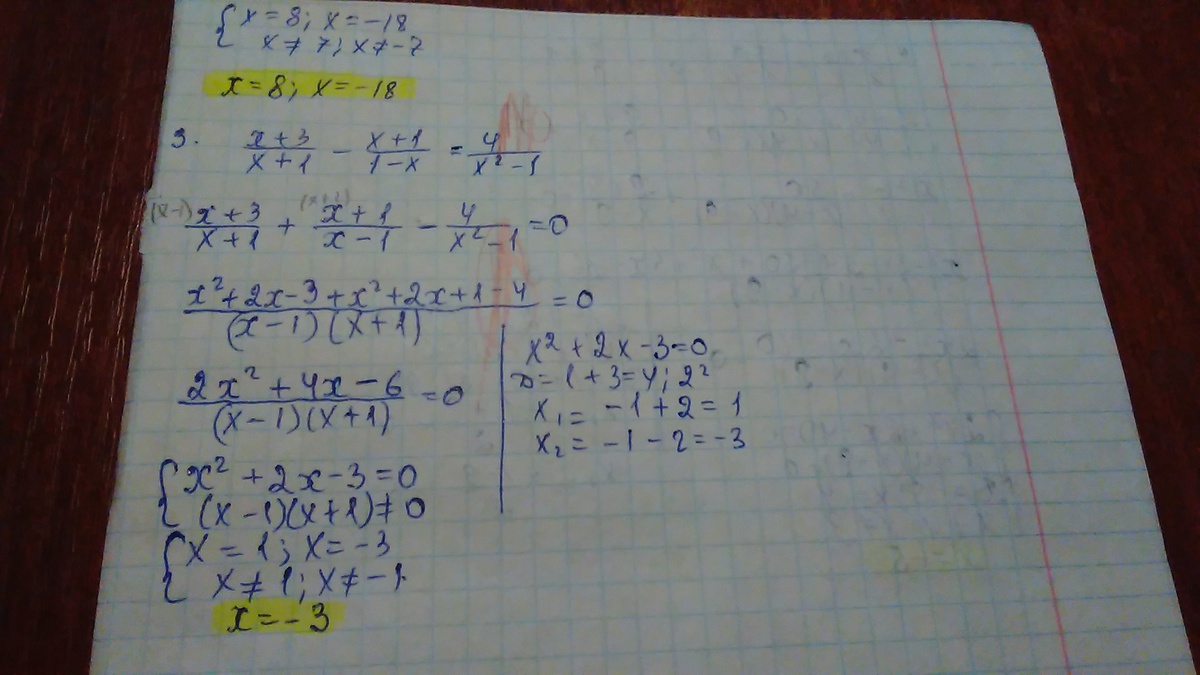 { x = 8; x = -18
x ≠ 7; x ≠ -7
x = 8; x = -18
3. (x+3)/(x+1) - (x+1)/(1-x) = 4/(x²-1)
(x-1) (x+3)/(x+1) + (x+1) (x+1)/(x-1) - 4/(x²-1) = 0
(x²+2x-3+x²+2x+1-4)/((x-1)(x+1)) = 0
(2x²+4x-6)/((x-1)(x+1)) = 0
{ x²+2x-3=0
(x-1)(x+1)≠0
{ x = 1; x = -3
x ≠ 1; x ≠ -1
x = -3
x²+2x-3=0
D=1+3=4; 2²
x₁= -1+2=1
x₂= -1-2=-3